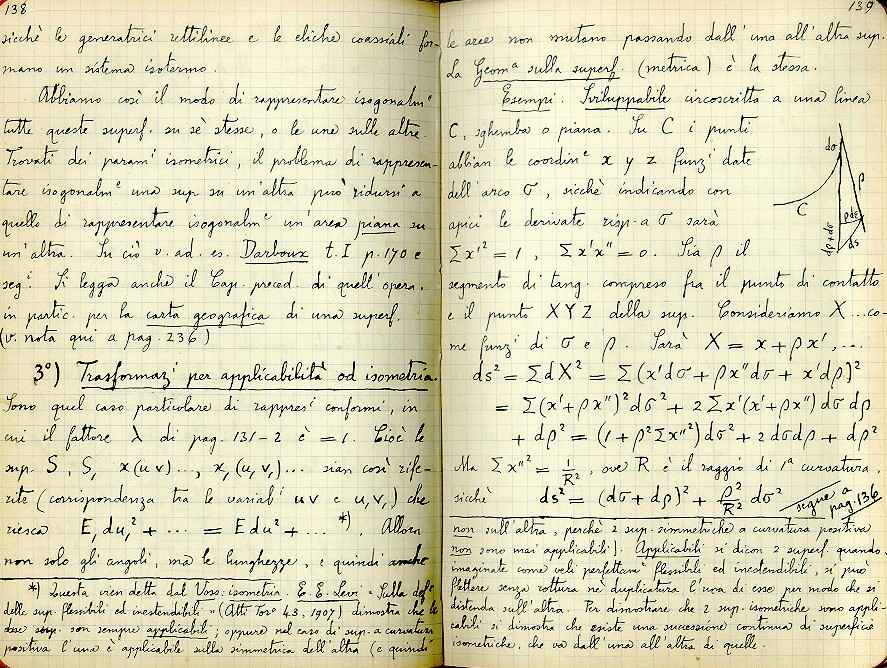 138
sicchè le generatrici rettilinee e le eliche coassiali for-
mano un sistema isotermo.
Abbiamo così il modo di rappresentare isogonalm.e
tutte queste superf. su sè stesse, o le une sulle altre.
Trovati dei param.i isometrici, il problema di rappresen-
tare isogonalm.e una sup su un'altra può ridursi a
quello di rappresentare isogonalm.e un'area piana su
un'altra. Su ciò v. ad. es. Darboux t. I p. 170 e
seg.i Si legga anche il Cap. preced. di quell'opera,
in partic. per la carta geografica di una superf.
(v. nota qui a pag. 236)
3°) Trasformaz.i per applicabilità od isometria.
Sono quel caso particolare di rappres.i conformi, in
cui il fattore λ di pag. 131-2 è = 1. Cioè le
sup. S, S₁ x(uv)..., x₁(u₁v₁)... sian così rife-
rite (corrispondenza tra le variab.i uv e u₁v₁) che
riesca E₁du₁² + ... = Edu² + ... *). Allora
non solo gli angoli, ma le lunghezze, e quindi anche
*) Questa vien detta dal Voss: isometria. E. E. Levi "Sulla def.e
delle sup. flessibili ed inestendibili" (Atti Tor.o 43, 1907) dimostra che le
due sup. son sempre applicabili; oppure nel caso di sup. a curvatura
positiva l'una è applicabile sulla simmetrica dell'altra (e quindi
139
le aree non mutano passando dall'una all'altra sup.
La Geom.a sulla superf. (metrica) è la stessa.
Esempi. Sviluppabile circoscritta a una linea
C, sghemba o piana. Su C i punti
abbian le coordin.e x y z funz.i date
dell'arco σ, sicchè indicando con
apici le derivate risp. a σ sarà
Σx'² = 1, Σx'x" = 0. Sia ρ il
segmento di tang. compreso fra il punto di contatto
e il punto XYZ della sup. Consideriamo X...co-
me funz.i di σ e ρ. Sarà X = x + ρx', ...
ds² = ΣdX² = Σ(x'dσ + ρx"dσ + x'dρ)²
= Σ(x' + ρx")²dσ² + 2Σx'(x' + ρx")dσdρ
+ dρ² = (1 + ρ²Σx"²)dσ² + 2dσdρ + dρ²
Ma Σx"² = 1/R², ove R è il raggio di 1ª curvatura,
sicchè ds² = (dσ + dρ)² + ρ²/R² dσ²
segue a
pag. 136
dσ
ρ
C
ρdε
dρ+dσ
ds
non sull'altra, perchè 2 sup. simmetriche a curvatura positiva
non sono mai applicabili). Applicabili si dicon 2 superf. quando,
imaginate come veli perfettam.e flessibili ed inestendibili, si può
flettere senza rottura nè duplicatura l'una di esse per modo che si
distenda sull'altra. Per dimostrare che 2 sup. isometriche sono appli-
cabili si dimostra che esiste una successione continua di superficie
isometriche, che va dall'una all'altra di quelle.